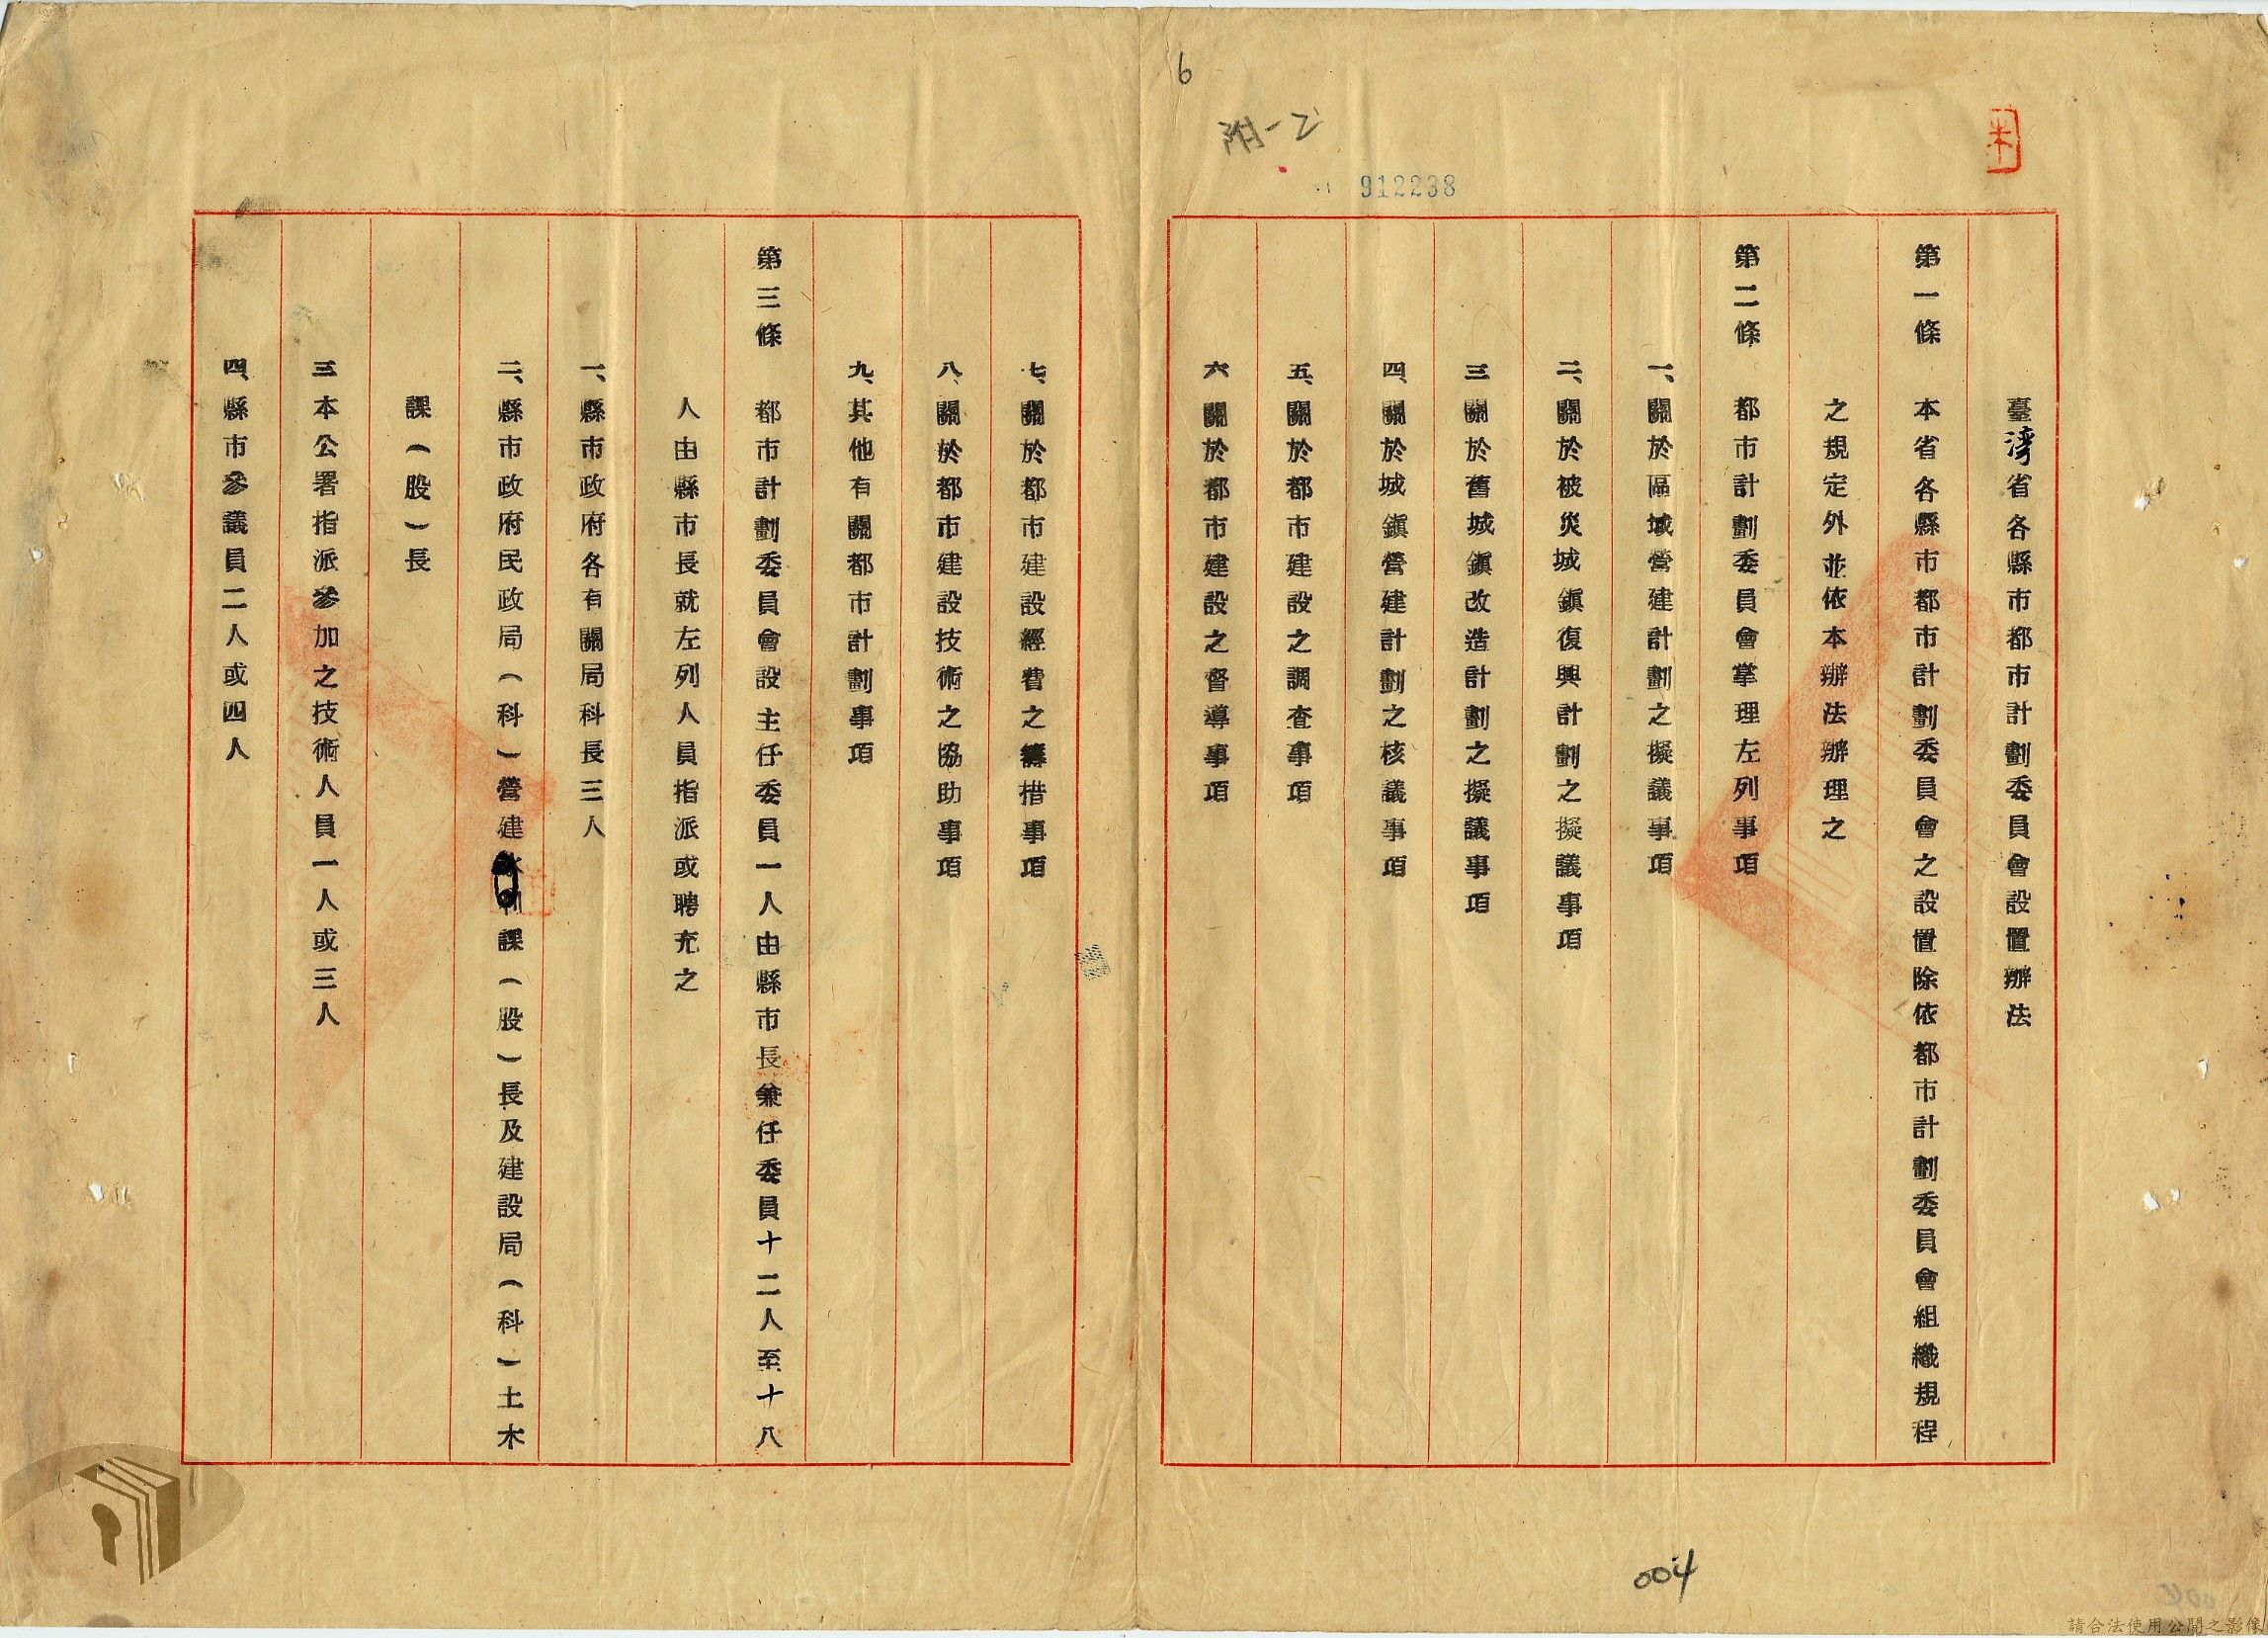 6
附-2
912238
臺灣省各縣市都市計劃委員會設置辦法
第一條 本省各縣市都市計劃委員會之設置除依都市計劃委員會組織規程
之規定外並依本辦法辦理之
第二條 都市計劃委員會掌理左列事項
一、關於區域營建計劃之擬議事項
二、關於被災城鎮復興計劃之擬議事項
三關於舊城鎮改造計劃之擬議事項
四、關於城鎮營建計劃之核議事項
五、關於都市建設之調查事項
六關於都市建設之督導事項
七、關於都市建設經費之籌措事項
八、關於都市建設技術之協助事項
九、其他有關都市計劃事項
第三條 都市計劃委員會設主任委員一人由縣市長兼任委員十二人至十八
人由縣市長就左列人員指派或聘充之
一、縣市政府各有關局科長三人
二、縣市政府民政局(科)營建課(股)長及建設局(科)土木
課(股)長
三本公署指派參加之技術人員一人或三人
四、縣市參議員二人或四人
004
請合法使用公開之影像